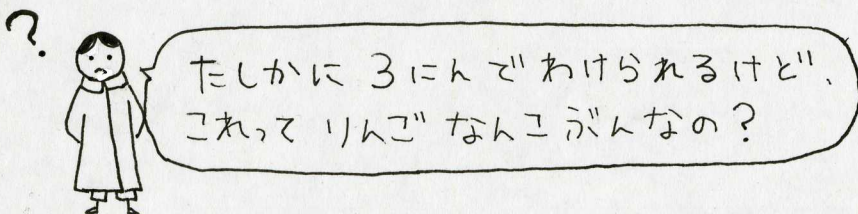 ?
たしかに 3にんで わけられるけど、
これって りんご なんこ ぶんなの?